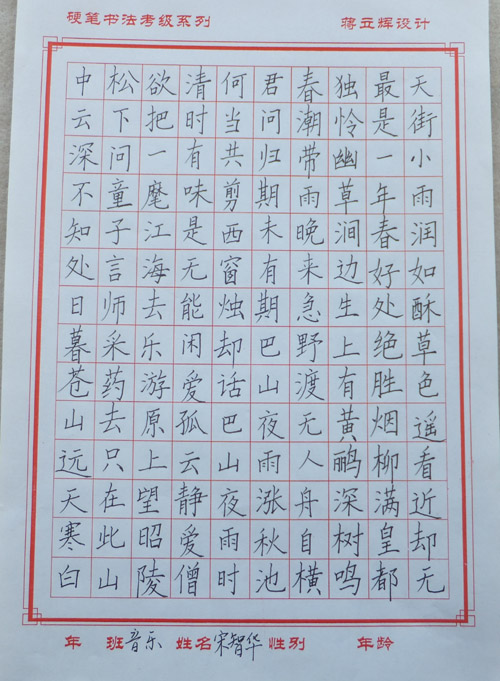 硬笔书法考级系列 蒋立辉设计
天街小雨润如酥草色遥看近却无
最是一年春好处绝胜烟柳满皇都
独怜幽草涧边生上有黄鹂深树鸣
春潮带雨晚来急野渡无人舟自横
君问归期未有期巴山夜雨涨秋池
何当共剪西窗烛却话巴山夜雨时
清时有味是无能闲爱孤云静爱僧
欲把一麾江海去乐游原上望昭陵
松下问童子言师采药去只在此山
中云深不知处日暮苍山远天寒白
年 班音乐 姓名宋智华 性别 年龄